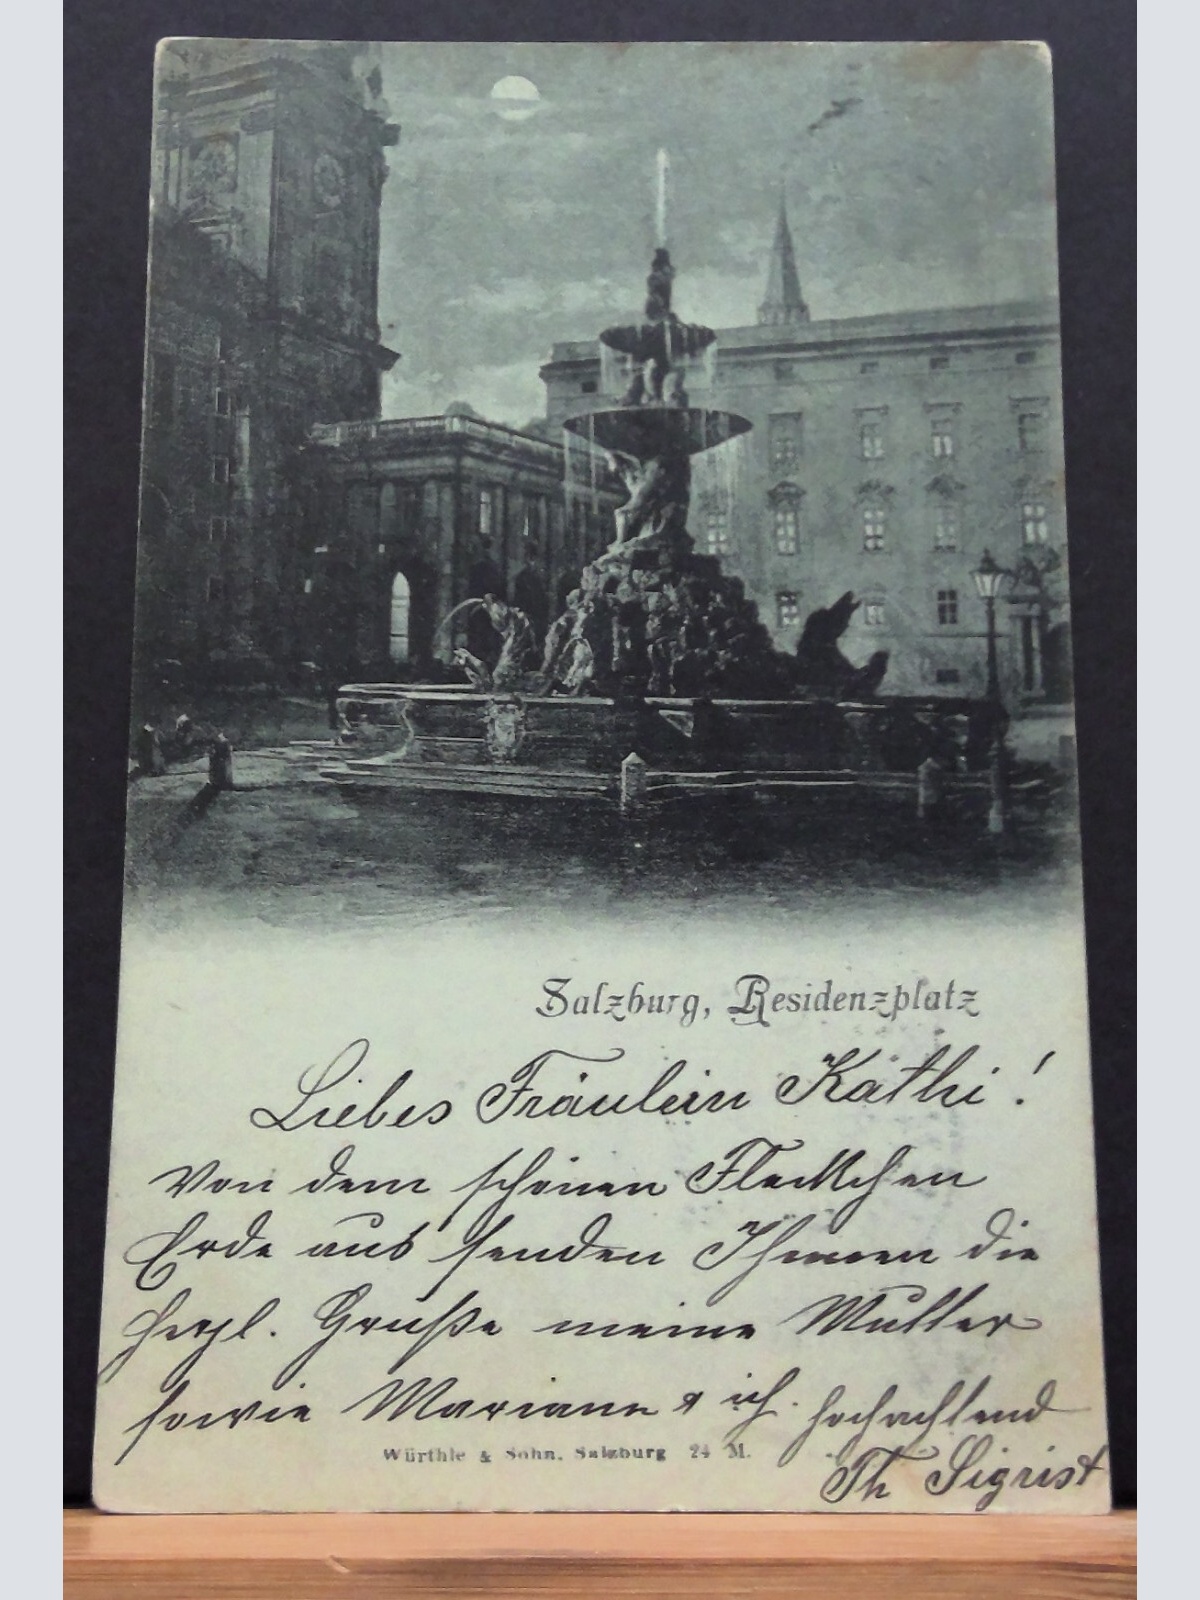 Salzburg, Residenzplatz
Liebes Fräulein Käthi!
Von dem schönen Fleckchen
Erde aus senden Ihnen die
herzl. Grüße meine Mutter
sowie Mariann & ich. hochachtend
Würthle & Sohn, Salzburg 24 M.
Th Sigrist